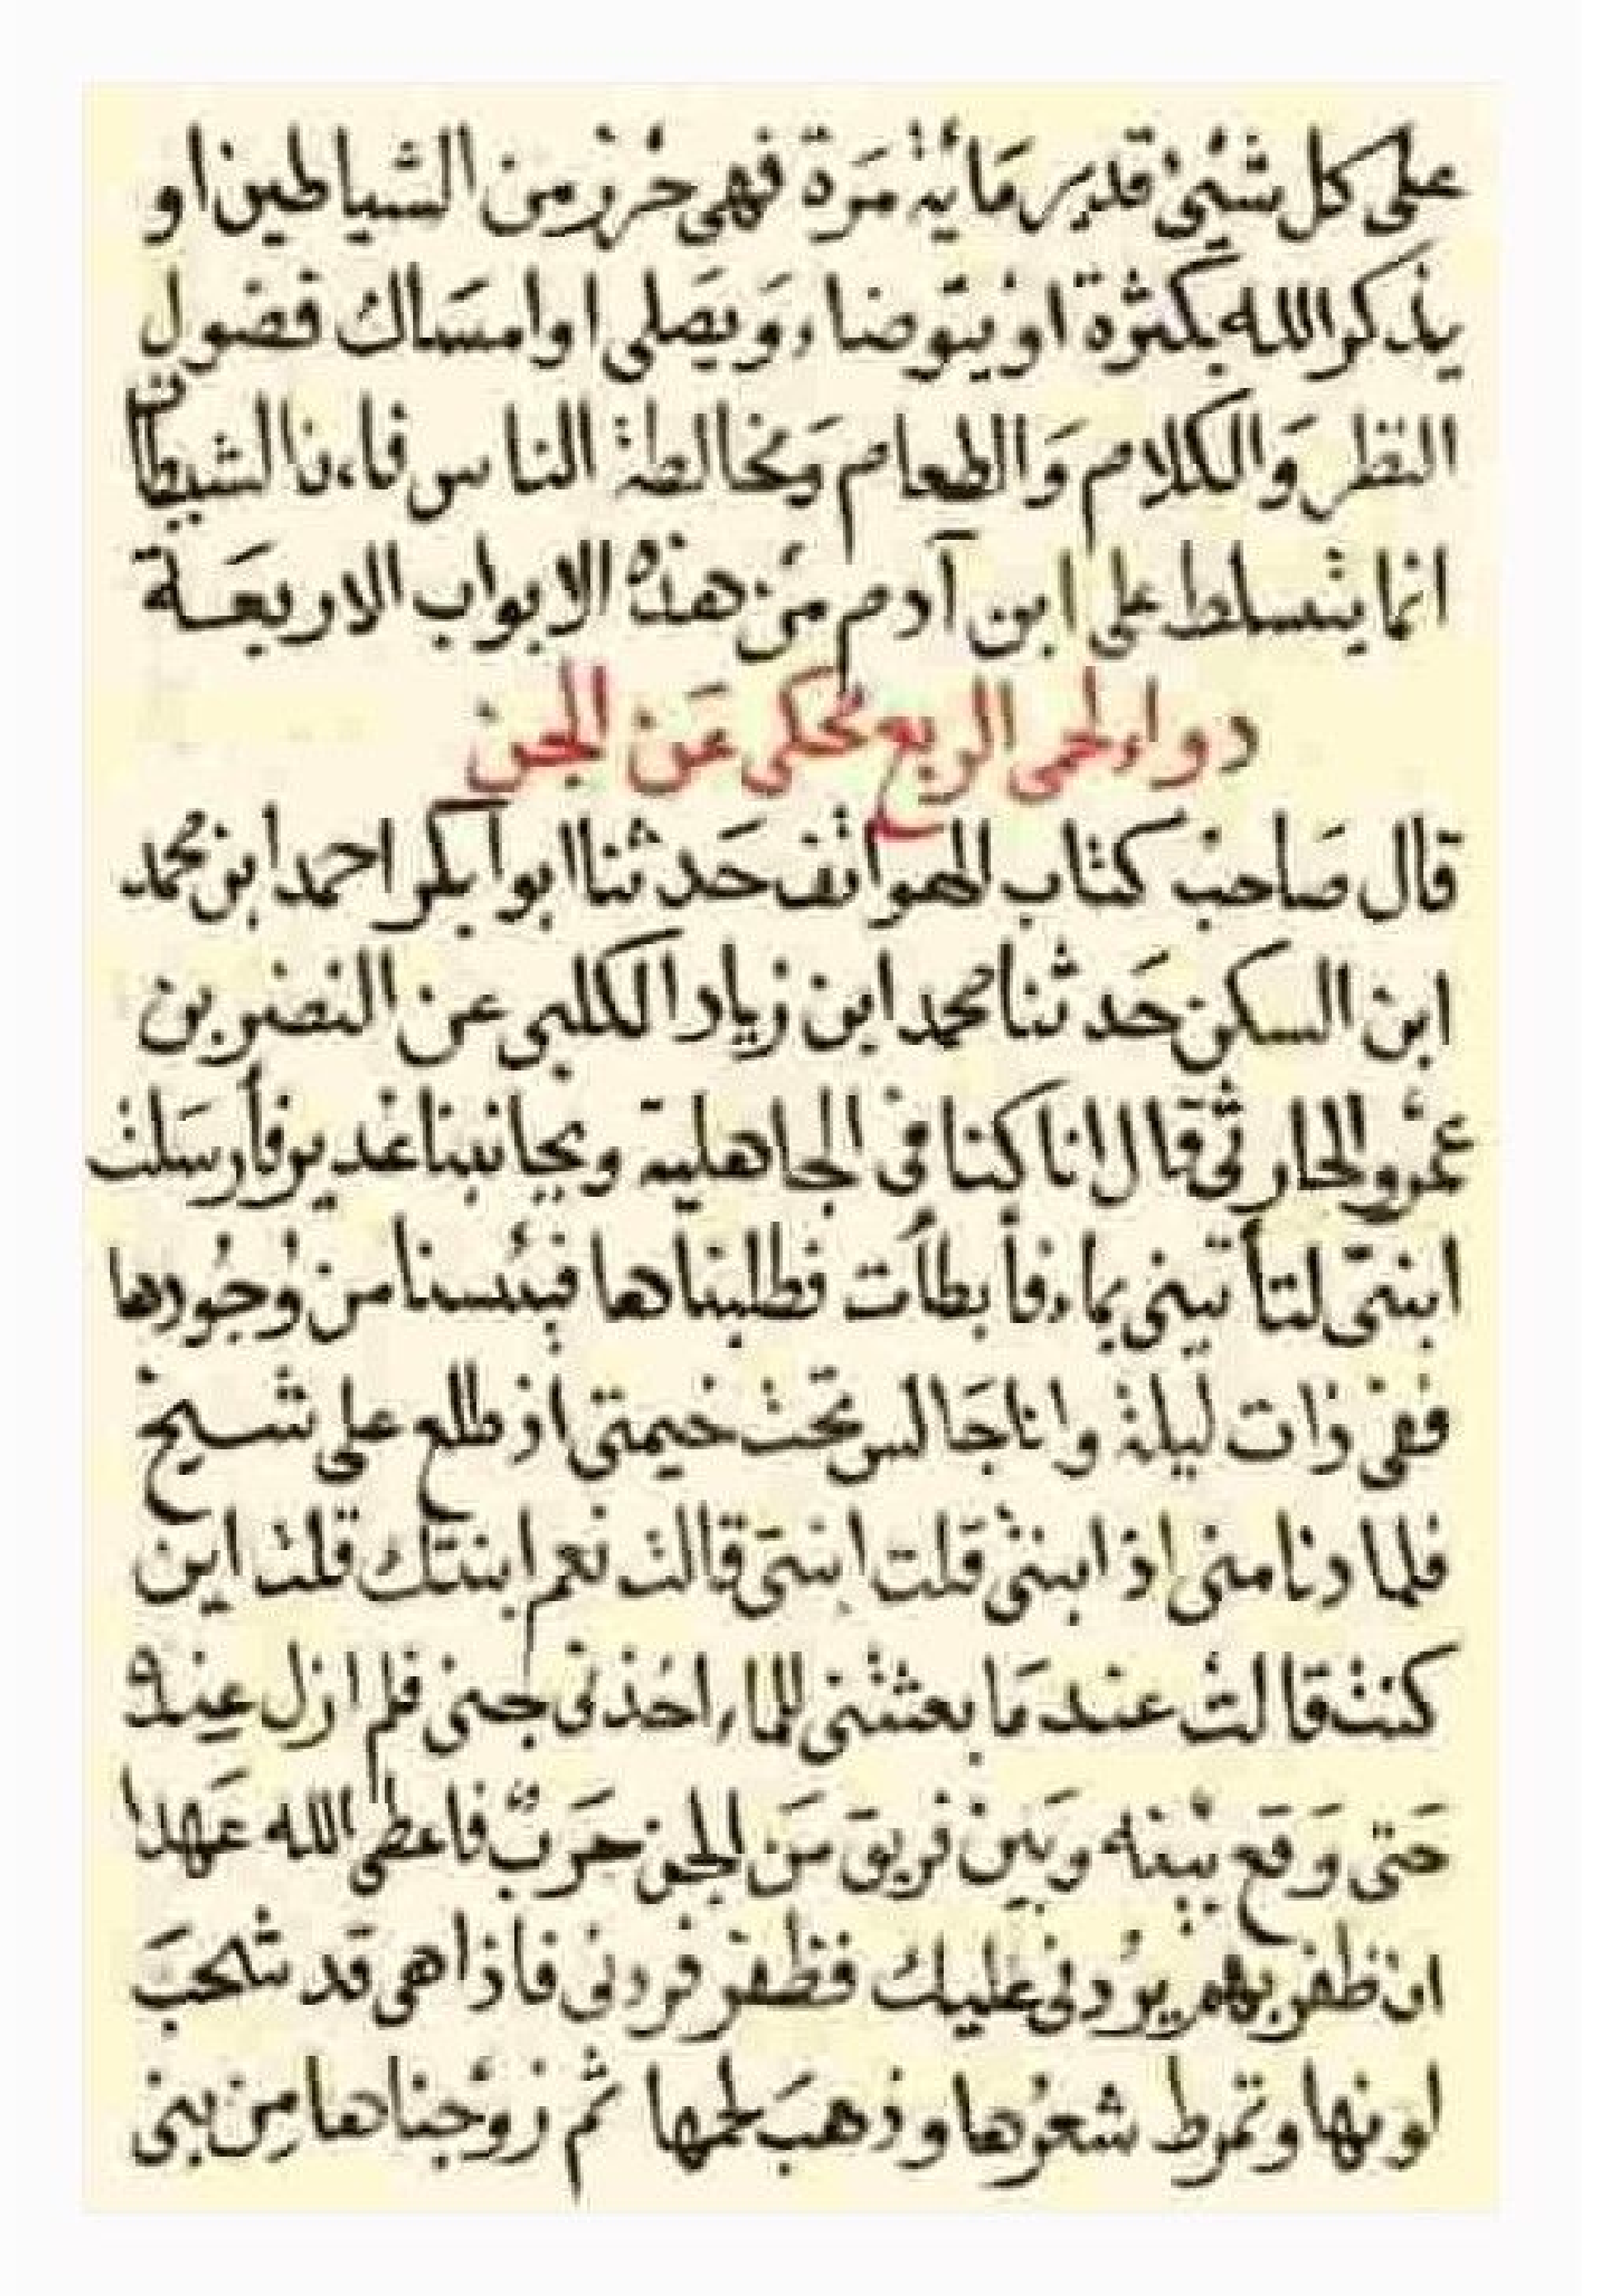 على كل شيئ قدير مأية مرة فهي حرز من الشياطين او
يذكر الله بكثرة او يتوضاء ويصلي او امساك فضول
النظر والكلام والطعام ومخالطة الناس فاءن الشيطان
انما يتسلط على ابن آدم من هذه الابواب الاربعة
دواء لحمى الربع يحكى عن الجن
قال صاحب كتاب الهواتف حدثنا ابوا بكر احمد ابن محمد
ابن السكن حدثنا محمد ابن زياد الكلبي عن النضر بن
عمرو الحارثي قال انا كنا في الجاهلية وبجانبنا غدير فأرسلت
ابنتي لتأتيني بماء فأبطأت فطلبناها فيئسنا من وجودها
ففي ذات ليلة وانا جالس تحت خيمتي اذ طلع علي شيخ
فلما دنا مني اذا ابنتي قلت ابنتي قالت نعم ابنتك قلت اين
كنت قالت عند ما بعثتني للماء اخذني جني فلم ازل عنده
حتى وقع بينه وبين فريق من الجن حرب فاعطى الله عهدا
ان ظفر بهم يردني عليك فظفر فردني فاذا هي قد شحب
لونها وتمرط شعرها وذهب لحمها ثم زوجناها من بني